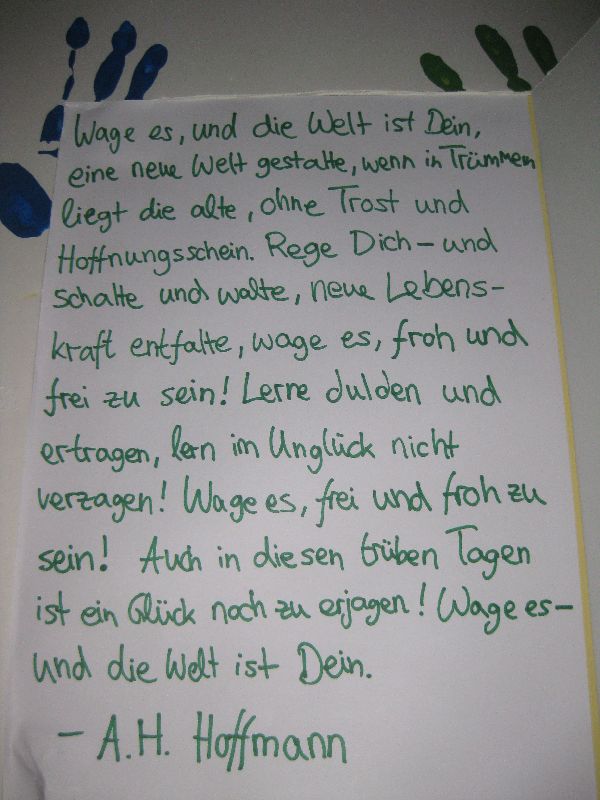 Wage es, und die Welt ist Dein,
eine neue Welt gestalte, wenn in Trümmern
liegt die alte, ohne Trost und
Hoffnungsschein. Rege Dich – und
schalte und walte, neue Lebens-
kraft entfalte, wage es, froh und
frei zu sein! Lerne dulden und
ertragen, lern im Unglück nicht
verzagen! Wage es, frei und froh zu
sein! Auch in diesen trüben Tagen
ist ein Glück noch zu erjagen! Wage es –
und die Welt ist Dein.
– A.H. Hoffmann